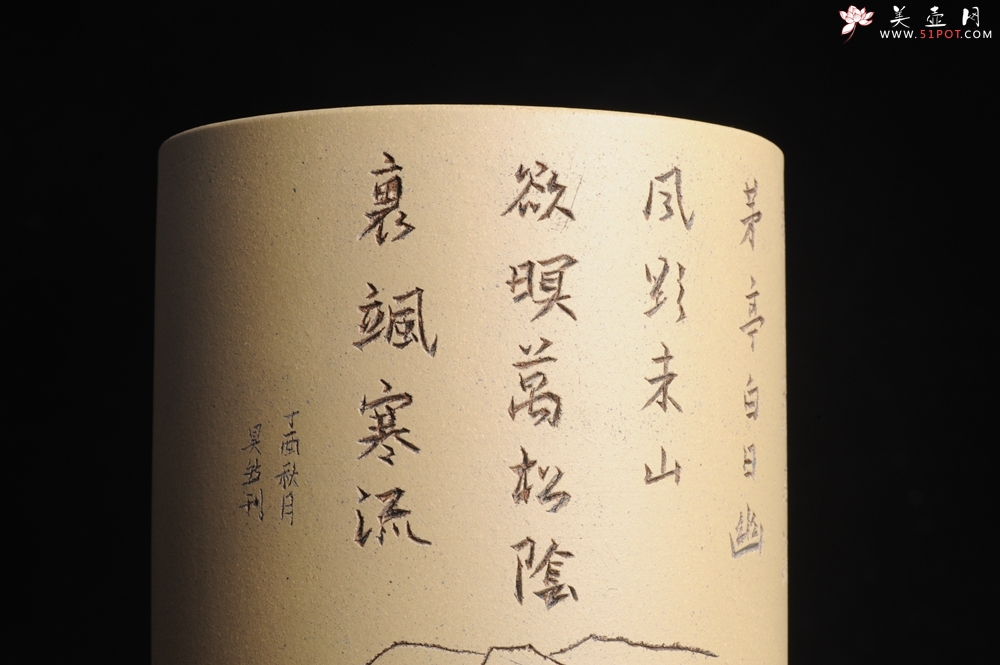 茅亭白日幽
風彭未山
欲暝萬松陰
裏颯寒流
丁酉秋月
吴刊
美壶网
WWW.51POT.COM